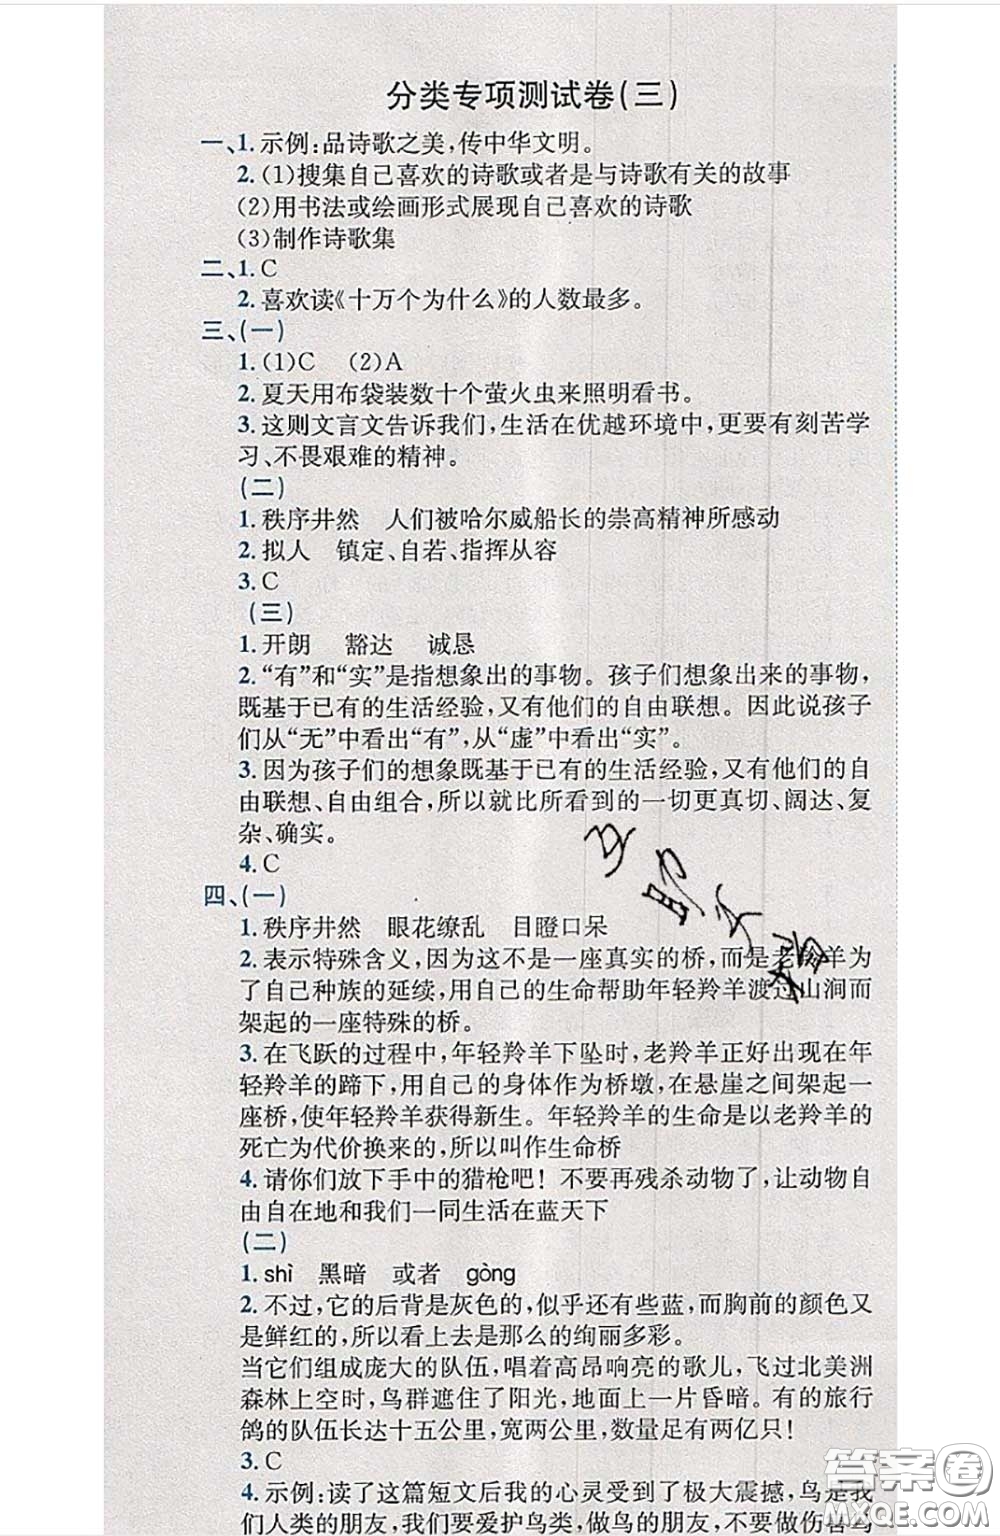 分类专项测试卷(三)
一、1.示例:品诗歌之美,传中华文明。
2.(1)搜集自己喜欢的诗歌或者是与诗歌有关的故事
(2)用书法或绘画形式展现自己喜欢的诗歌
(3)制作诗歌集
二、1.C
2.喜欢读《十万个为什么》的人数最多。
三、(一)
1.(1)C (2)A
2.夏天用布袋装数十个萤火虫来照明看书。
3.这则文言文告诉我们,生活在优越环境中,更要有刻苦学
习、不畏艰难的精神。
(二)
1.秩序井然 人们被哈尔威船长的崇高精神所感动
2.拟人 镇定、自若、指挥从容
3.C
(三)
1.开朗 豁达 诚恳
2.“有”和“实”是指想象出的事物。孩子们想象出来的事物,
既基于已有的生活经验,又有他们的自由联想。因此说孩子
们从“无”中看出“有”,从“虚”中看出“实”。
3.因为孩子们的想象既基于已有的生活经验,又有他们的自
由联想、自由组合,所以就比所看到的一切更真切、阔达、复
杂、确实。
4.C
四、(一)
1.秩序井然 眼花缭乱 目瞪口呆
2.表示特殊含义,因为这不是一座真实的桥,而是老羚羊为
了自己种族的延续,用自己的生命帮助年轻羚羊渡过山涧而
架起的一座特殊的桥。
3.在飞跃的过程中,年轻羚羊下坠时,老羚羊正好出现在年
轻羚羊的蹄下,用自己的身体作为桥墩,在悬崖之间架起一
座桥,使年轻羚羊获得新生。年轻羚羊的生命是以老羚羊的
死亡为代价换来的,所以叫作生命桥
4.请你们放下手中的猎枪吧!不要再残杀动物了,让动物自
由自在地和我们一同生活在蓝天下
(二)
1.shì 黑暗 或者 gòng
2.不过,它的后背是灰色的,似乎还有些蓝,而胸前的颜色又
是鲜红的,所以看上去是那么的绚丽多彩。
当它们组成庞大的队伍,唱着高昂响亮的歌儿,飞过北美洲
森林上空时,鸟群遮住了阳光,地面上一片昏暗。有的旅行
鸽的队伍长达十五公里,宽两公里,数量足有两亿只!
3.C
4.示例:读了这篇短文后我的心灵受到了极大震撼,鸟是我
们人类的朋友,我们要爱护鸟类,做鸟的朋友,不要做伤害鸟
答案圈
MXQE.COM